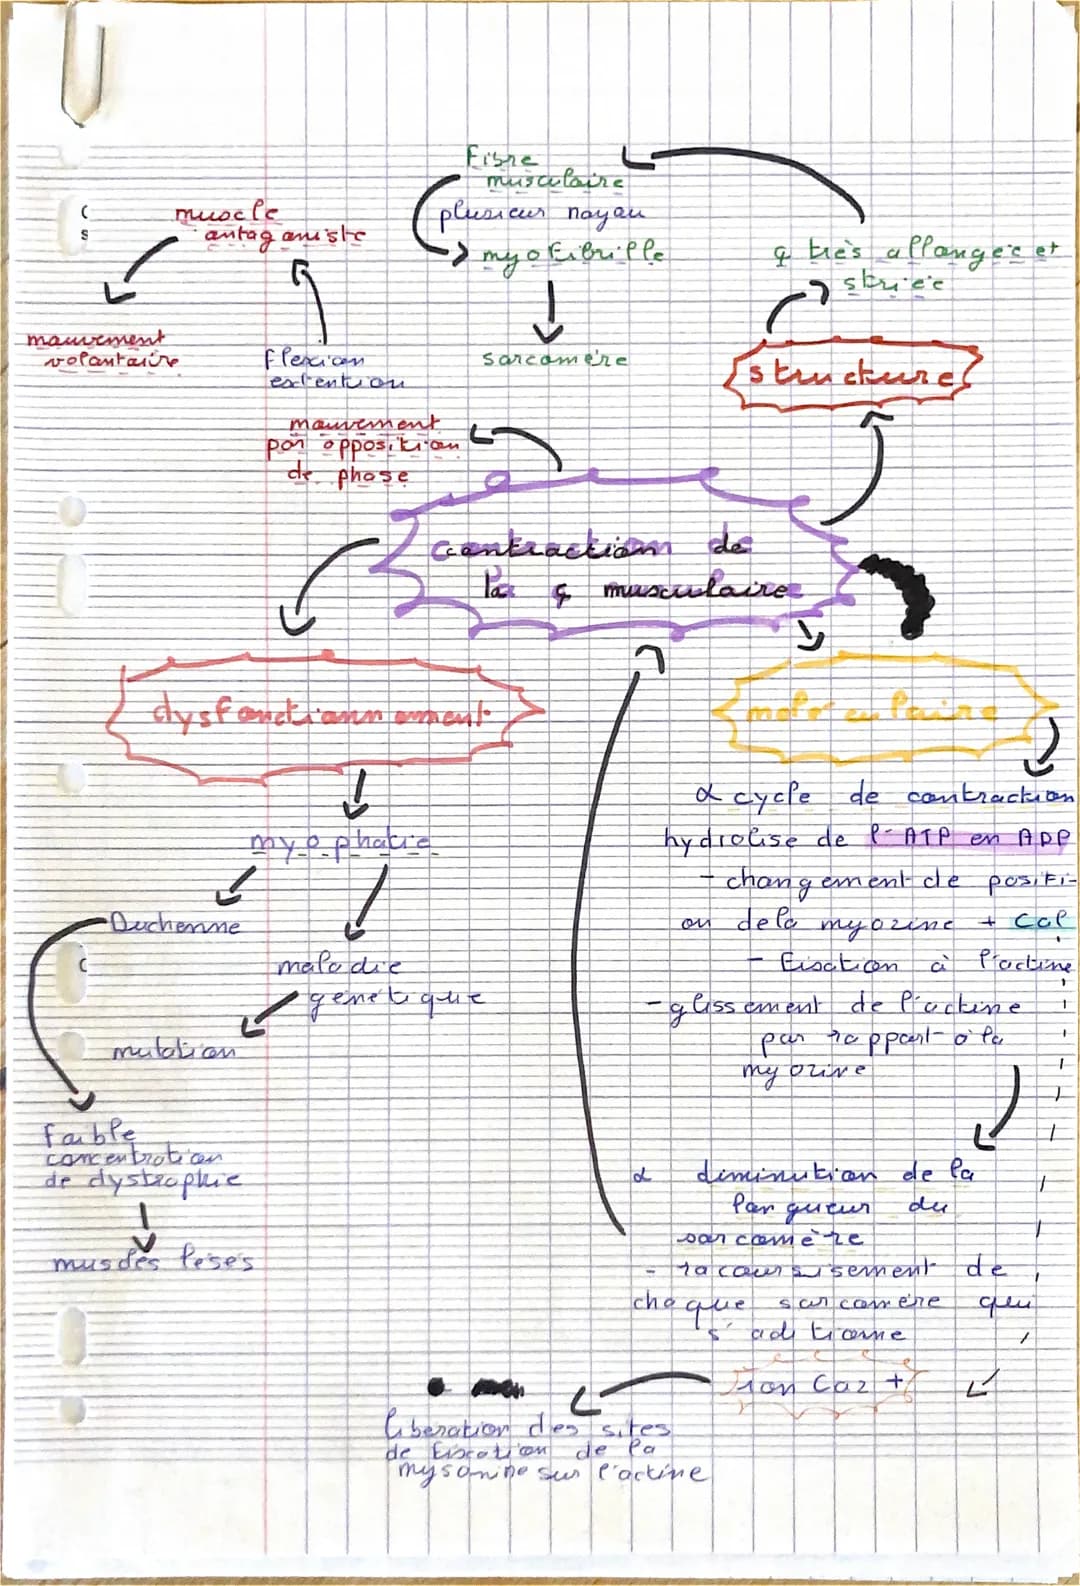 Fibre
musculaire
plusieur noyau
myofibrille
sarcomère
muscle
antagoniste
mouvement
volontaire
flexion
extention
ç très allongée et
striée
structure
mouvement
par opposition
de phase
contraction de
la ç musculaire
dysfonctionnement
moléculaire
myophatie
Duchenne
maladie
génétique
mutation
faible
concentration
de dystrophie
muscles lésés
α cycle de contraction
hydrolise de l'ATP en ADP
- changement de positi-
on de la myozine + Cal
- fixation à l'actine
- glissement de l'actine
par rapport à la
myozine
α diminution de la
longueur du
sarcomère
- racoursisement de
chaque sarcomère qui
s'aditionne
ion Ca2+
liberation des sites
de fixation de la
mysonine sur l'actine